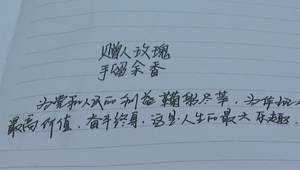 赠人玫瑰
手留余香
为党和人民的利益鞠躬尽萃，为
最高价值，奋斗终身，这是人生的最大乐趣．